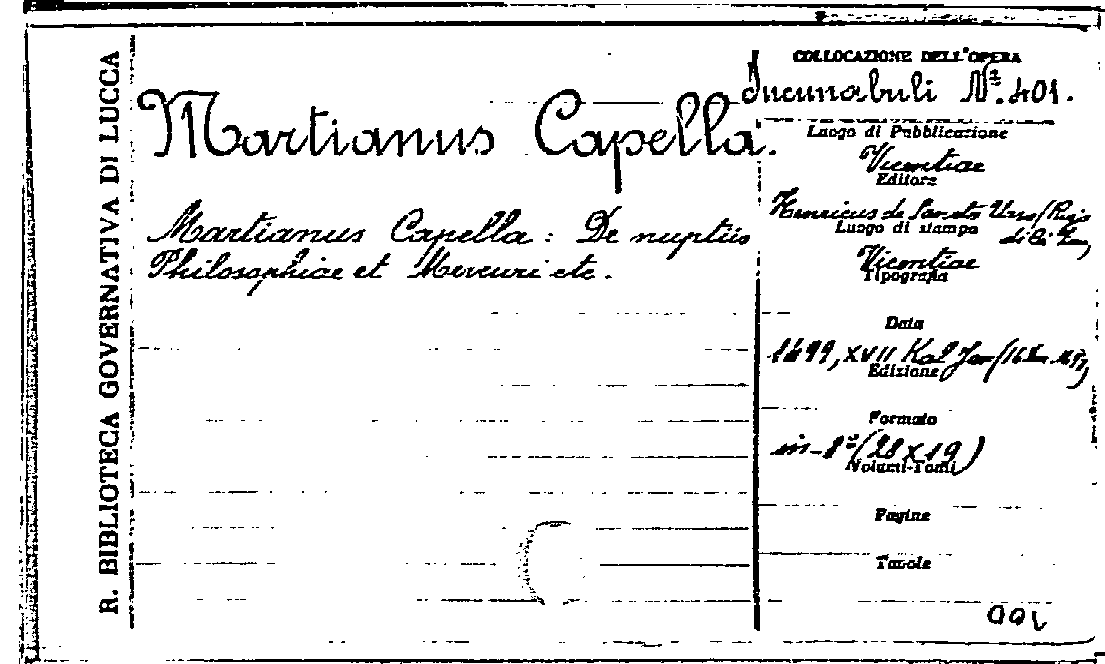 R. BIBLIOTECA GOVERNATIVA DI LUCCA
Martianus Capella.
Martianus Capella: De nuptiis
Philosophiae et Mercuri etc.
COLLOCAZIONE DELL'OPERA
Incunabuli Nº. 401.
Luogo di Pubblicazione
Vicentiae
Editore
Henricus de Sancto Urso
Luogo di stampa
Vicentiae
Tipografia
Data
1499, XVII Kal Jan
Edizione
Formato
in-8º (28 x 19)
Volumi-Tomi
Pagine
Tavole